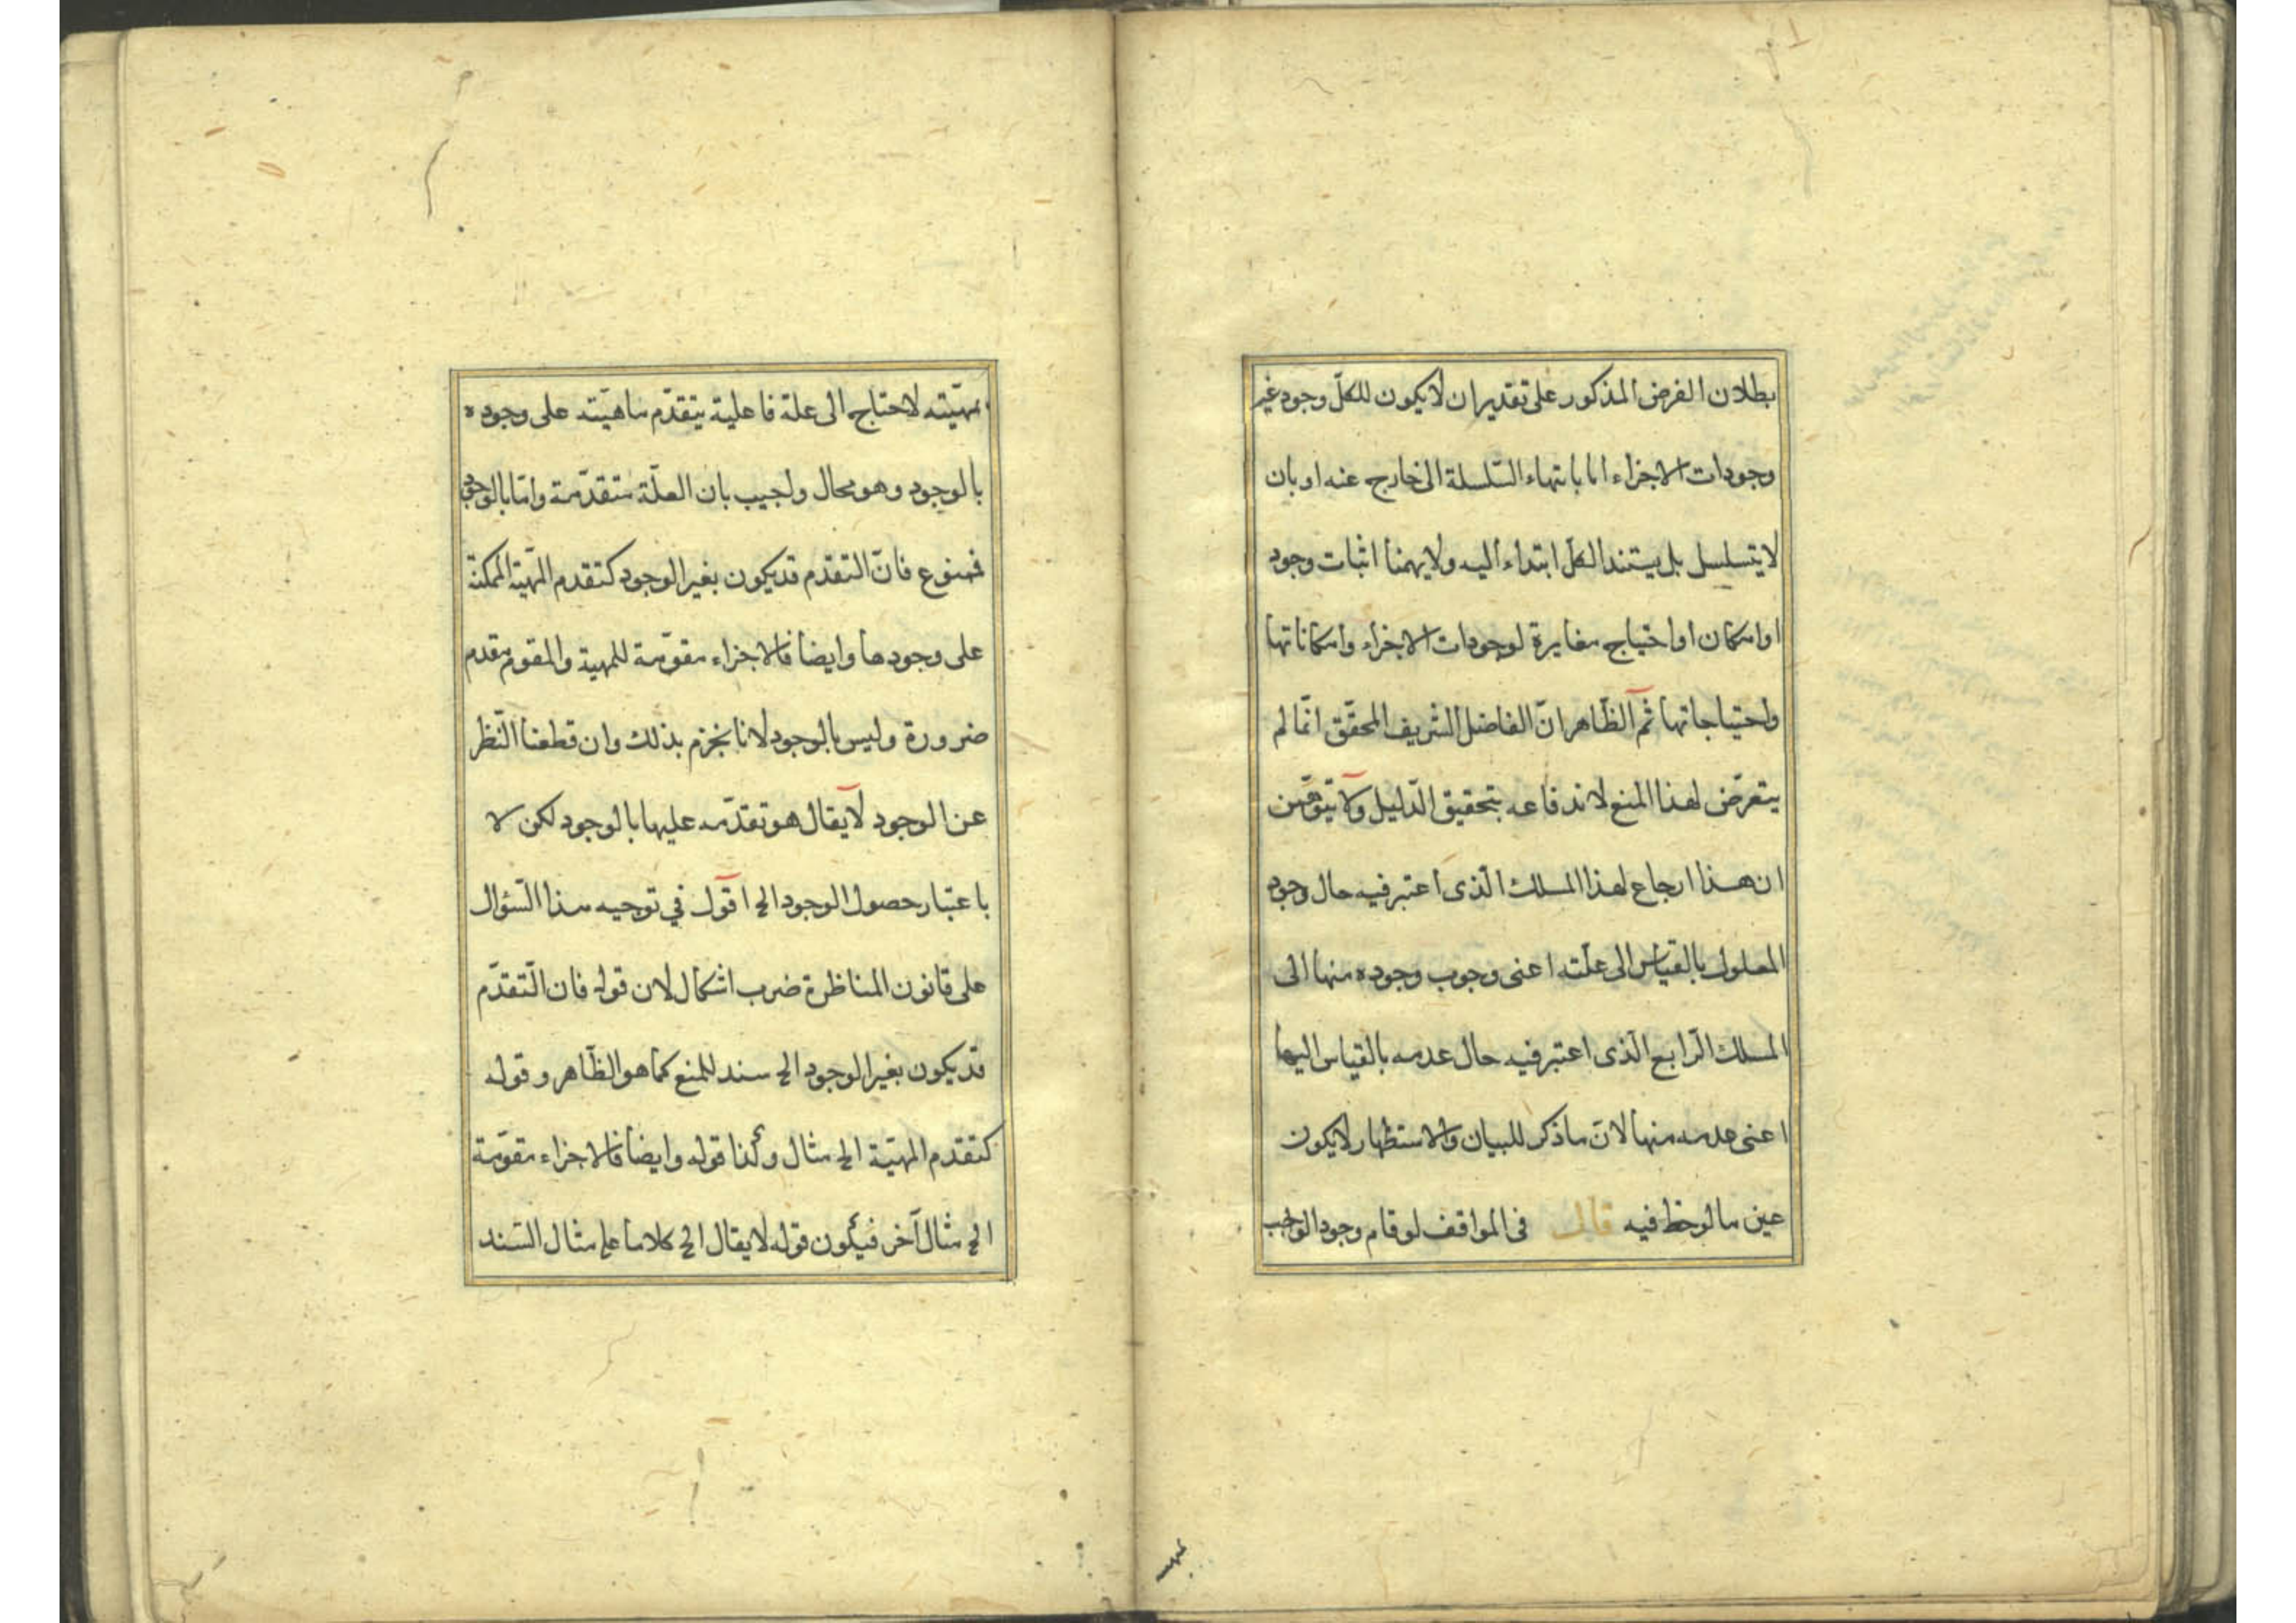 بطلان الفرض المذكور على تقدير ان لا يكون للكلّ وجود غير
وجودات الاجزاء اما بانتهاء السّلسلة الى خارج عنه او بان
لا يتسلسل بل يستند الكل ابتداء اليه ولا يهمنا اثبات وجود
او امكان او احتياج مغايرة لوجودات الاجزاء وامكاناتها
واحتياجاتها ثم الظاهر انّ الفاضل الشريف المحقّق انّما لم
يتعرّض لهذا المنع لاندفاعه بتحقيق الدّليل ولا يتوهّمن
ان هذا ارجاع لهذا المسلك الّذى اعتبر فيه حال وجود
المعلول بالقياس الى علّته اعنى وجوب وجوده منها الى
المسلك الرّابع الّذى اعتبر فيه حال عدمه بالقياس اليها
اعنى عدمه منها لانّ ما ذكر للبيان والاستظهار لا يكون
عين ما لوحظ فيه قال فى المواقف لو قام وجود الواجب
بمهيّته لاحتاج الى علة فاعلية يتقدّم ماهيّته على وجوده
بالوجود وهو محال واجيب بان العلّة متقدّمة وامّا بالوجود
فممنوع فانّ التقدم قد يكون بغير الوجود كتقدم المهيّة الممكنة
على وجودها وايضا فالاجزاء مقوّمة للمهية والمقوم مقدم
ضرورة وليس بالوجود لانا نجزم بذلك وان قطعنا النّظر
عن الوجود لا يقال هو تقدّمه عليها بالوجود لكن لا
باعتبار حصول الوجود الخ اقول في توجيه هذا السّؤال
على قانون المناظرة ضرب اشكال لان قوله فان التّقدّم
قد يكون بغير الوجود الخ سند للمنع كما هو الظّاهر وقوله
كتقدم المهيّة الخ مثال وكذا قوله وايضا فالاجزاء مقوّمة
الخ مثال آخر فيكون قوله لا يقال الخ كلاما على مثال السّند